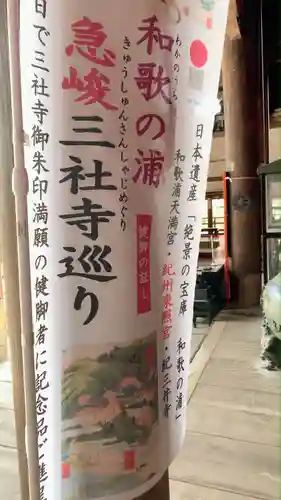 日本遺産「絶景の宝庫 和歌の浦」
和歌浦天満宮・紀州東照宮・紀三井寺
わかのうら
和歌の浦
きゅうしゅんさんしゃじめぐり
急峻三社寺巡り
健脚の証し
日で三社寺御朱印満願の健脚者に記念品ご進